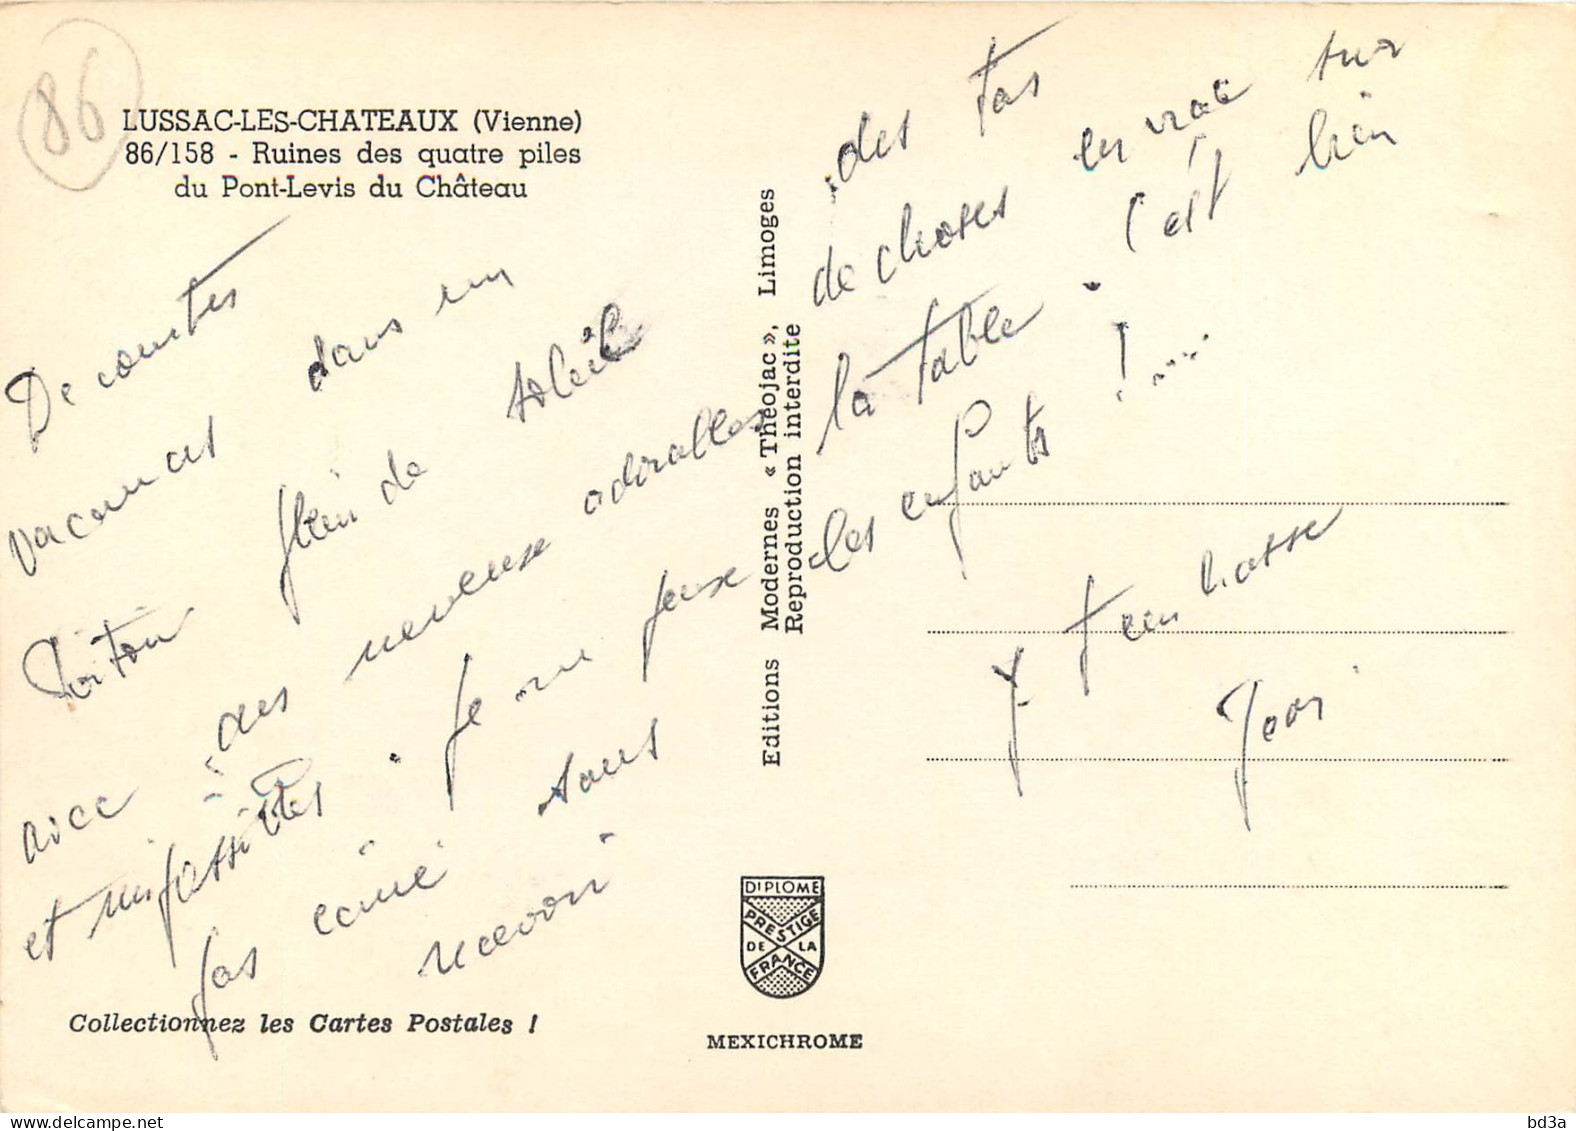 86
LUSSAC-LES-CHATEAUX (Vienne)
86/158 - Ruines des quatre piles
du Pont-Levis du Château
De courtes
vacances dans un
Poitou plein de soleil
avec des neveux adorables
et impossibles. Je ne peux
pas écrire sans
recevoir
des tas
de choses en vrac sur
la table. C'est bien
les enfants !....
Je t'embrasse
Editions Modernes « Théojac », Limoges
Reproduction interdite
DIPLOME
PRESTIGE
DE LA
FRANCE
MEXICHROME
Collectionnez les Cartes Postales !
bd3a